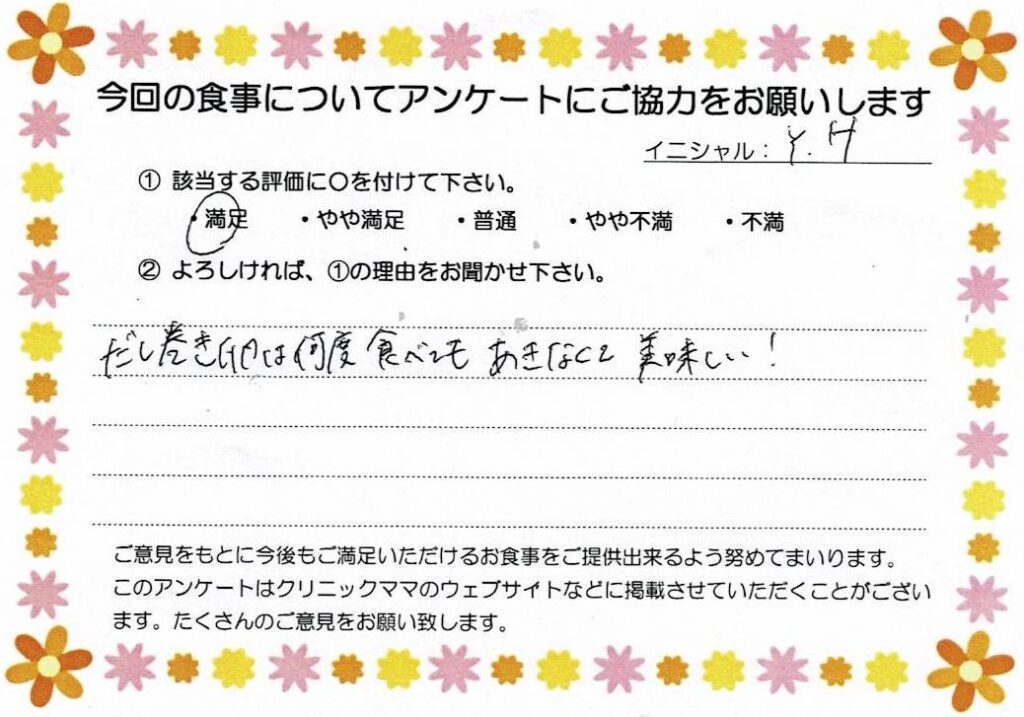 今回の食事についてアンケートにご協力をお願いします
イニシャル： Y.H
① 該当する評価に〇を付けて下さい。
・満足 ・やや満足 ・普通 ・やや不満 ・不満
② よろしければ、①の理由をお聞かせ下さい。
だし巻き卵は何度食べてもあきなくて美味しい！
ご意見をもとに今後もご満足いただけるお食事をご提供出来るよう努めてまいります。
このアンケートはクリニックママのウェブサイトなどに掲載させていただくことがござい
ます。たくさんのご意見をお願い致します。